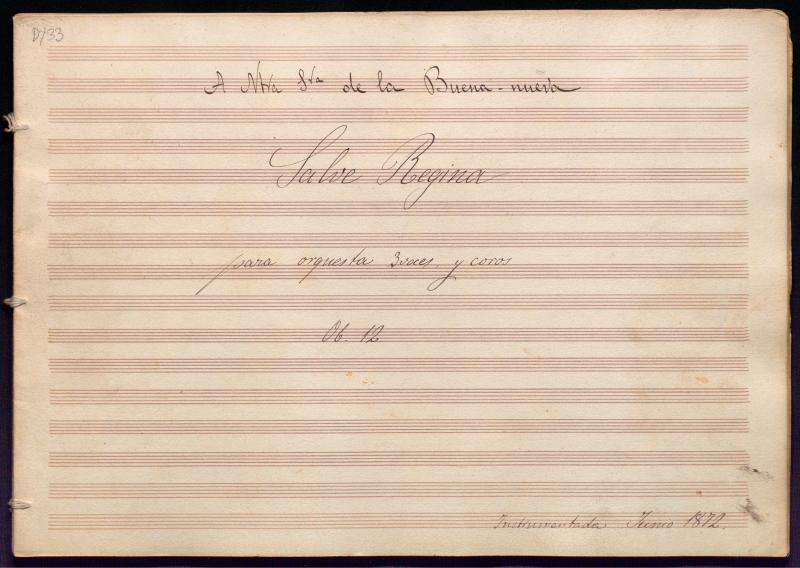 D/33
A Ntra Sra de la Buena-nueva
Salve Regina
para orquesta 3 voces y coros
Ob. 12
Instrumentada Junio 1872.